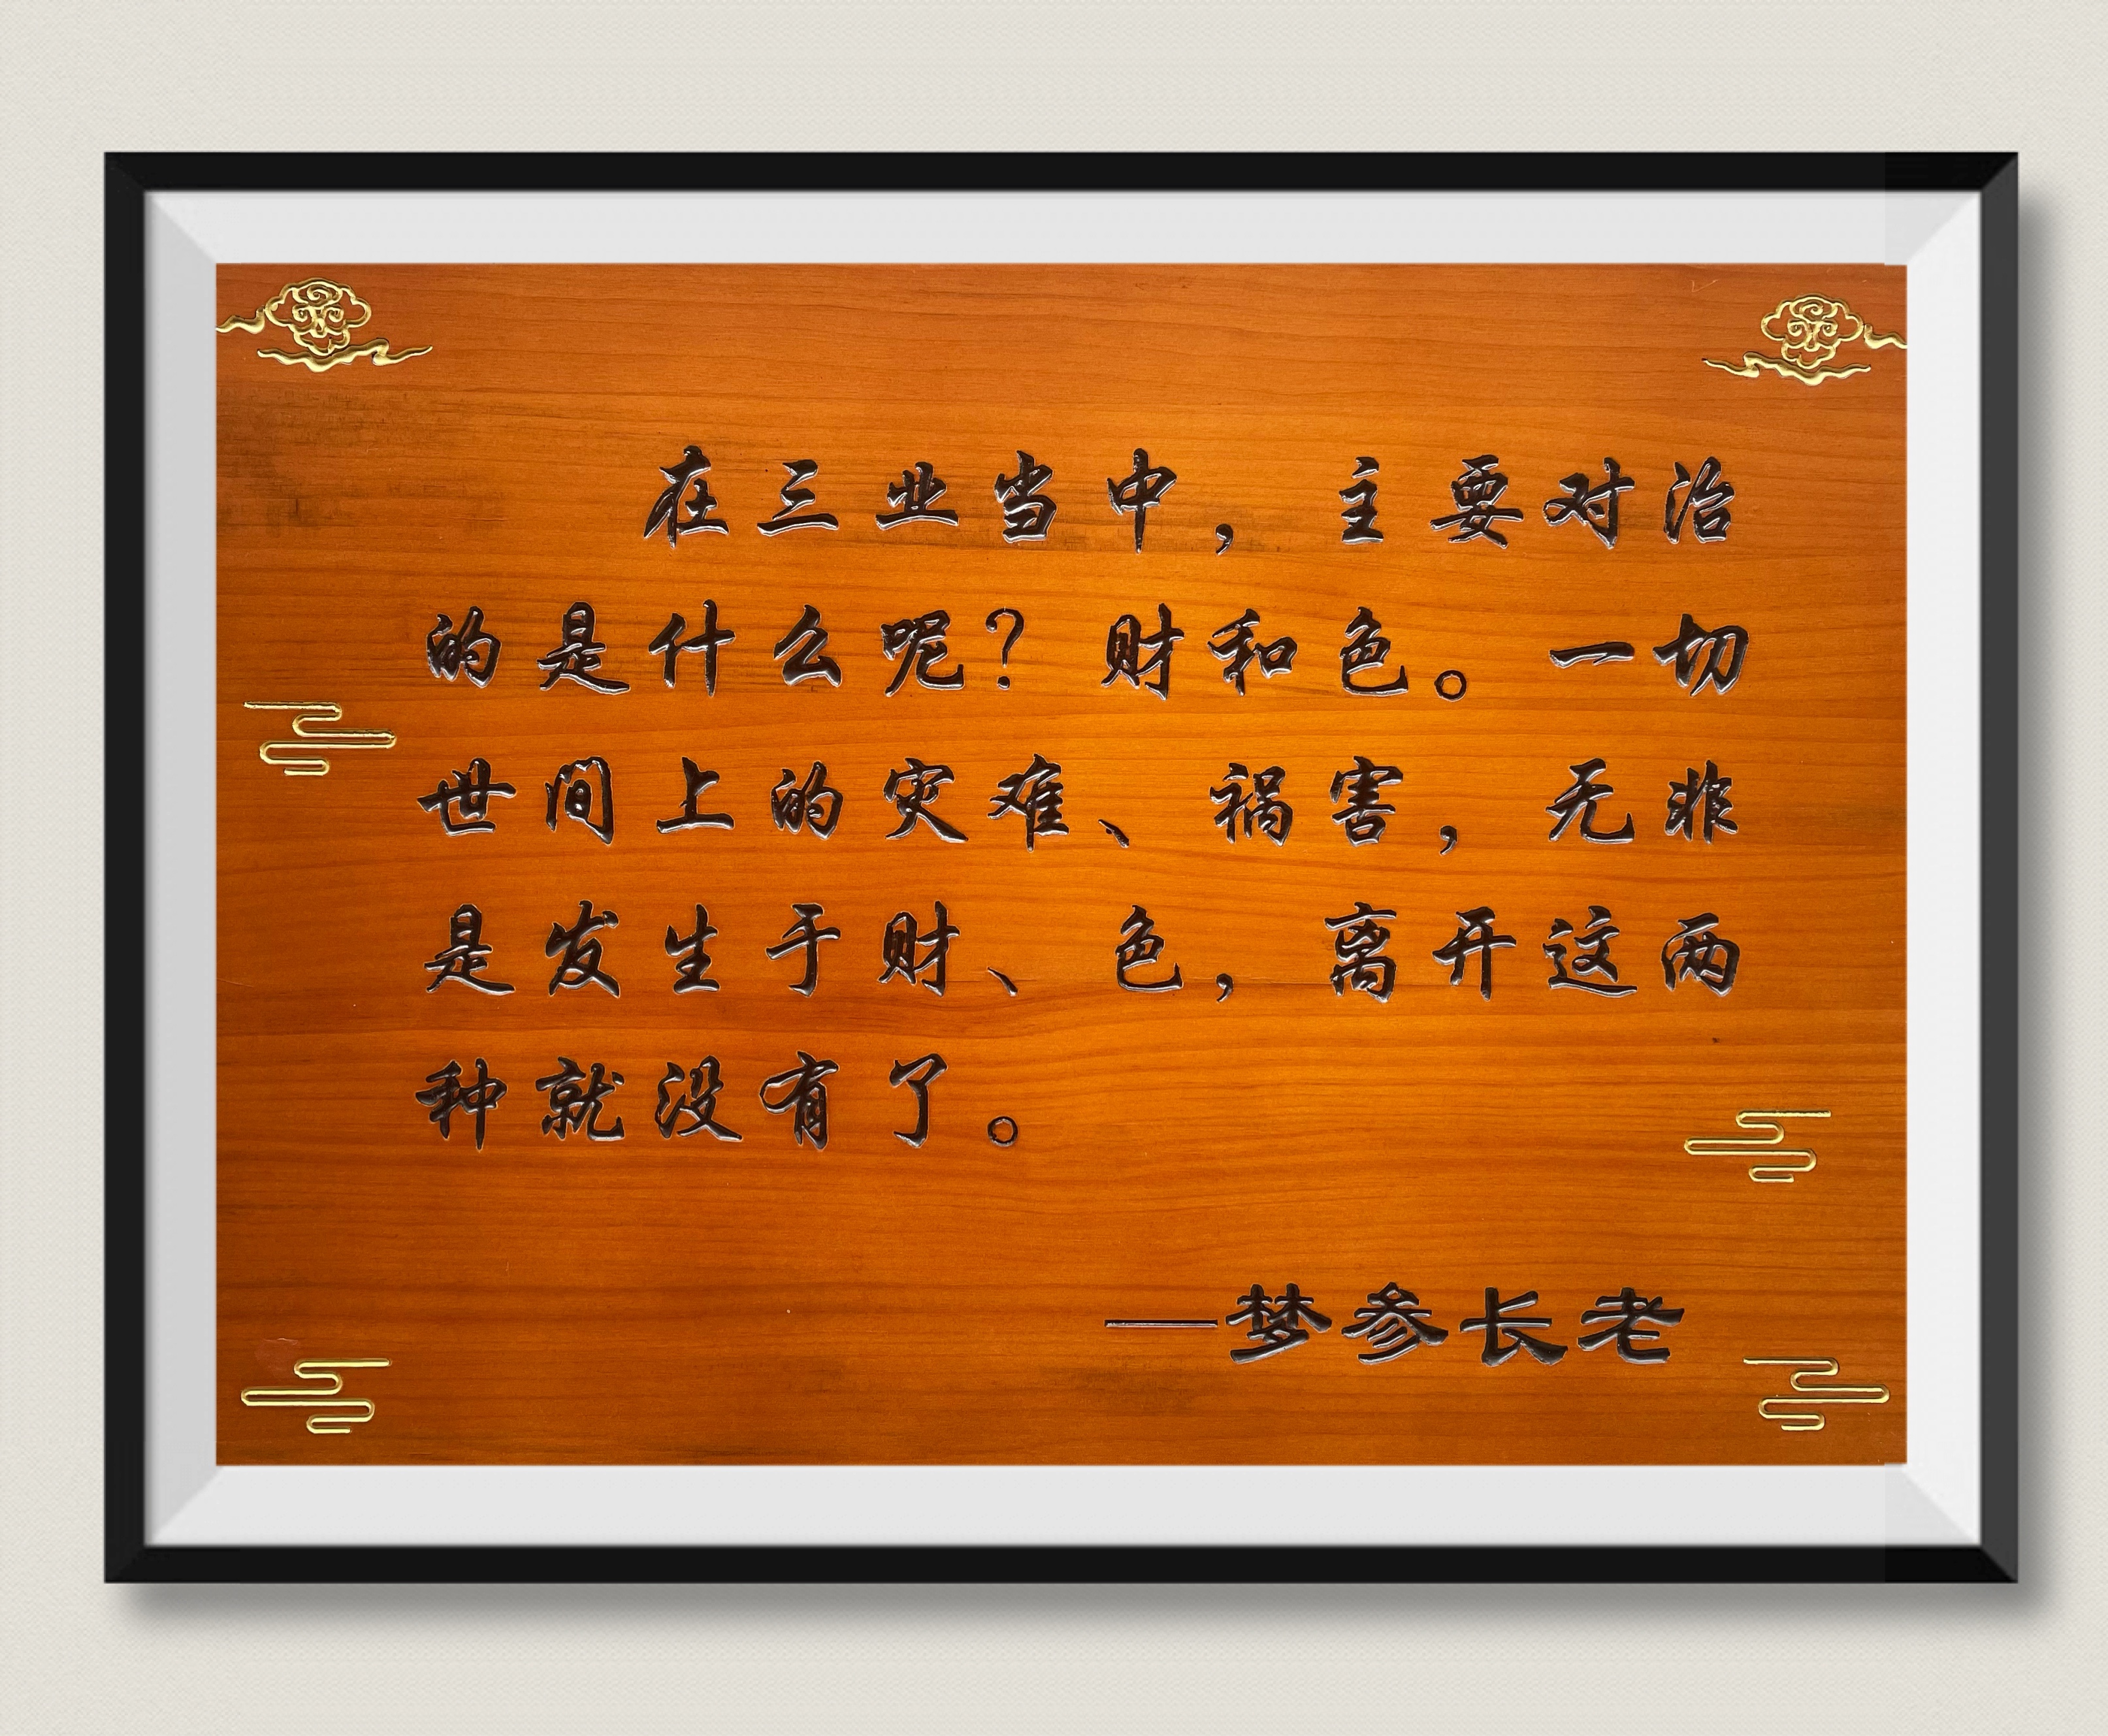 在三业当中，主要对治
的是什么呢？财和色。一切
世间上的灾难、祸害，无非
是发生于财、色，离开这两
种就没有了。
—梦参长老